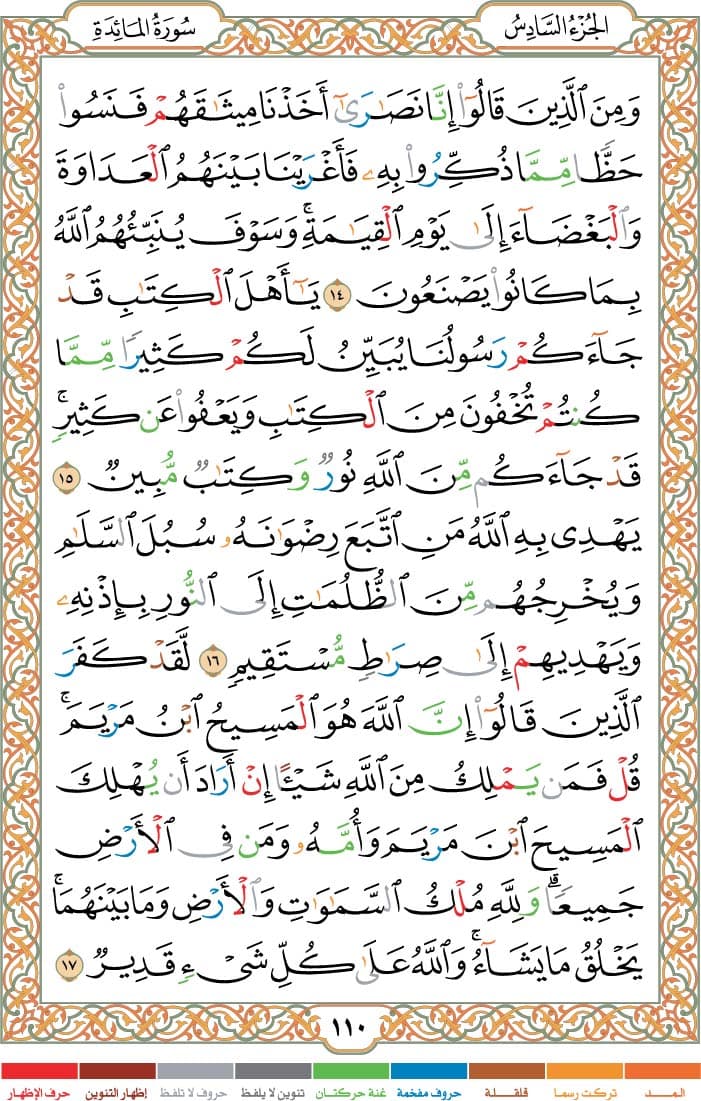 الجُزْءُ السَّادِسُ
سُورَةُ المَائِدَةِ
وَمِنَ ٱلَّذِينَ قَالُوٓا۟ إِنَّا نَصَـٰرَىٰٓ أَخَذْنَا مِيثَـٰقَهُمْ فَنَسُوا۟
حَظًّا مِّمَّا ذُكِّرُوا۟ بِهِۦ فَأَغْرَيْنَا بَيْنَهُمُ ٱلْعَدَاوَةَ
وَٱلْبَغْضَآءَ إِلَىٰ يَوْمِ ٱلْقِيَـٰمَةِ ۚ وَسَوْفَ يُنَبِّئُهُمُ ٱللَّهُ
بِمَا كَانُوا۟ يَصْنَعُونَ ١٤ يَـٰٓأَهْلَ ٱلْكِتَـٰبِ قَدْ
جَآءَكُمْ رَسُولُنَا يُبَيِّنُ لَكُمْ كَثِيرًا مِّمَّا
كُنتُمْ تُخْفُونَ مِنَ ٱلْكِتَـٰبِ وَيَعْفُوا۟ عَن كَثِيرٍ ۚ
قَدْ جَآءَكُم مِّنَ ٱللَّهِ نُورٌ وَكِتَـٰبٌ مُّبِينٌ ١٥
يَهْدِى بِهِ ٱللَّهُ مَنِ ٱتَّبَعَ رِضْوَٰنَهُۥ سُبُلَ ٱلسَّلَـٰمِ
وَيُخْرِجُهُم مِّنَ ٱلظُّلُمَـٰتِ إِلَى ٱلنُّورِ بِإِذْنِهِۦ
وَيَهْدِيهِمْ إِلَىٰ صِرَٰطٍ مُّسْتَقِيمٍ ١٦ لَّقَدْ كَفَرَ
ٱلَّذِينَ قَالُوٓا۟ إِنَّ ٱللَّهَ هُوَ ٱلْمَسِيحُ ٱبْنُ مَرْيَمَ ۚ
قُلْ فَمَن يَمْلِكُ مِنَ ٱللَّهِ شَيْـًٔا إِنْ أَرَادَ أَن يُهْلِكَ
ٱلْمَسِيحَ ٱبْنَ مَرْيَمَ وَأُمَّهُۥ وَمَن فِى ٱلْأَرْضِ
جَمِيعًا ۗ وَلِلَّهِ مُلْكُ ٱلسَّمَـٰوَٰتِ وَٱلْأَرْضِ وَمَا بَيْنَهُمَا ۚ
يَخْلُقُ مَا يَشَآءُ ۚ وَٱللَّهُ عَلَىٰ كُلِّ شَىْءٍ قَدِيرٌ ١٧
١١٠
المـــد تركت رسما قلقـلة حروف مفخمة غنة حركتان تنوين لا يلفظ حروف لا تلفظ إظهار التنوين حرف الإظهار